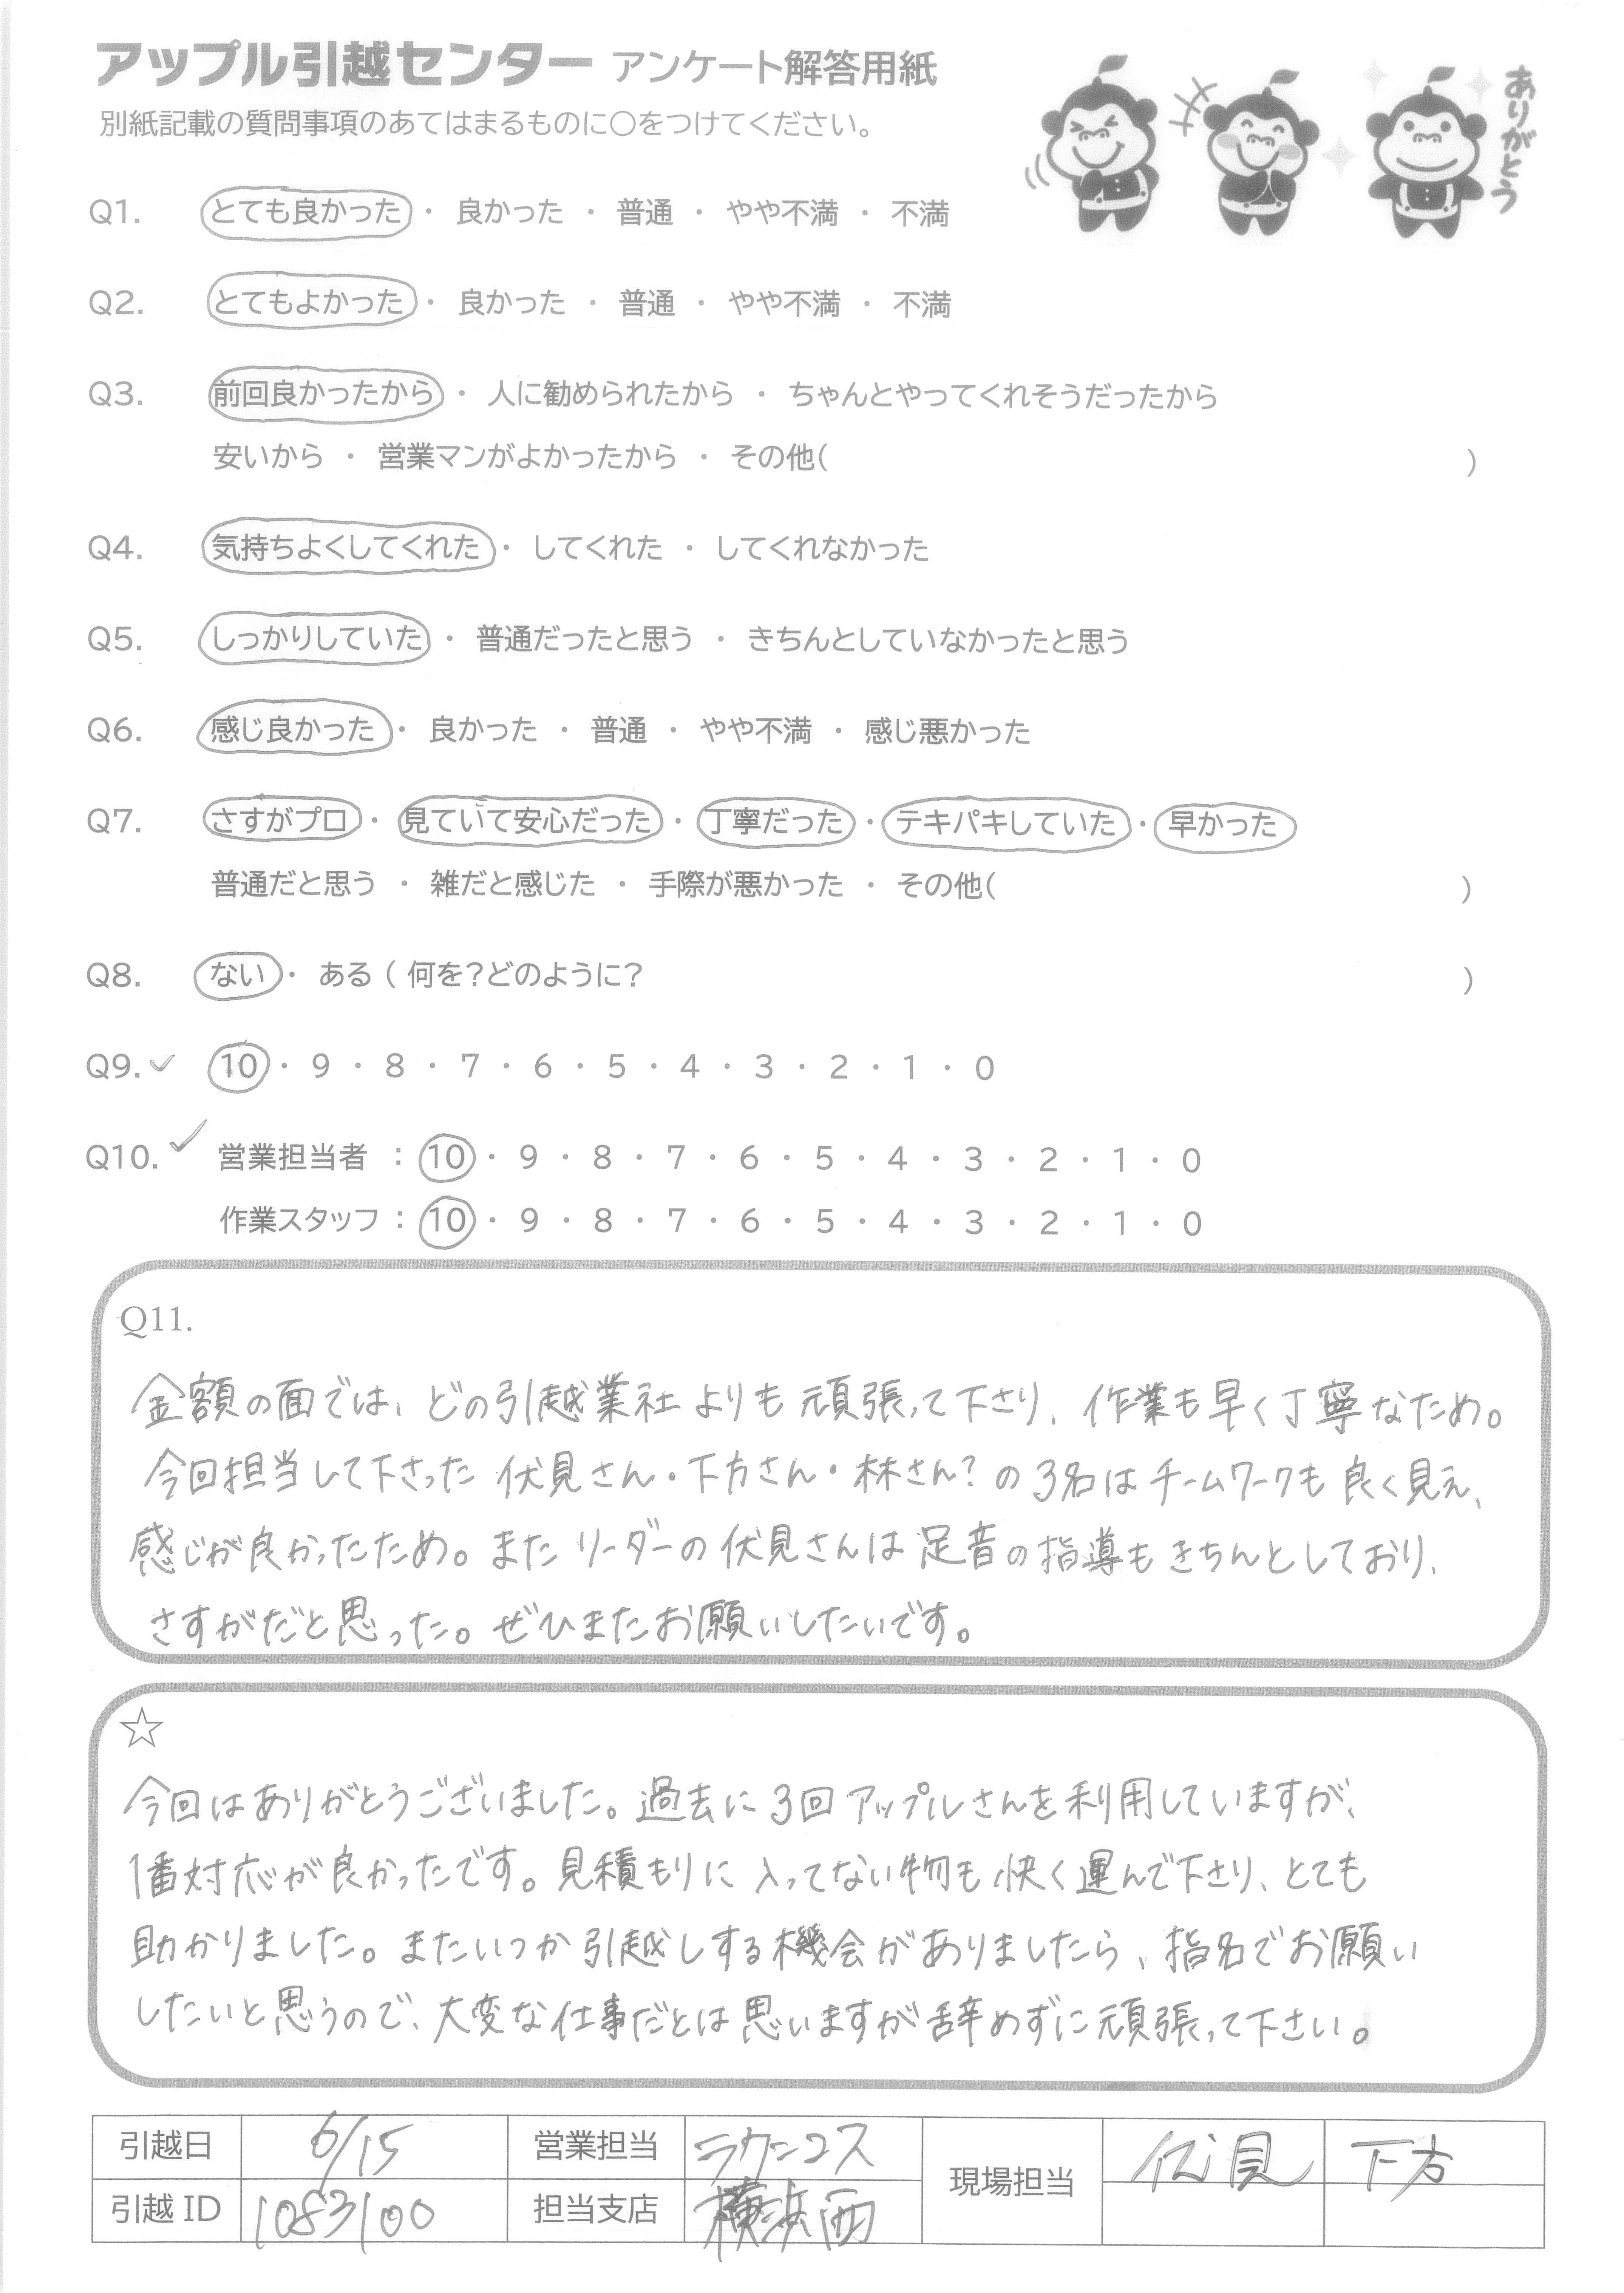 アップル引越センター アンケート解答用紙
別紙記載の質問事項のあてはまるものに○をつけてください。
ありがとう
Q1. とても良かった ・ 良かった ・ 普通 ・ やや不満 ・ 不満
Q2. とてもよかった ・ 良かった ・ 普通 ・ やや不満 ・ 不満
Q3. 前回良かったから ・ 人に勧められたから ・ ちゃんとやってくれそうだったから
安いから ・ 営業マンがよかったから ・ その他( )
Q4. 気持ちよくしてくれた ・ してくれた ・ してくれなかった
Q5. しっかりしていた ・ 普通だったと思う ・ きちんとしていなかったと思う
Q6. 感じ良かった ・ 良かった ・ 普通 ・ やや不満 ・ 感じ悪かった
Q7. さすがプロ ・ 見ていて安心だった ・ 丁寧だった ・ テキパキしていた ・ 早かった
普通だと思う ・ 雑だと感じた ・ 手際が悪かった ・ その他( )
Q8. ない ・ ある ( 何を?どのように? )
Q9. ✓ 10 ・ 9 ・ 8 ・ 7 ・ 6 ・ 5 ・ 4 ・ 3 ・ 2 ・ 1 ・ 0
Q10. ✓ 営業担当者 : 10 ・ 9 ・ 8 ・ 7 ・ 6 ・ 5 ・ 4 ・ 3 ・ 2 ・ 1 ・ 0
作業スタッフ : 10 ・ 9 ・ 8 ・ 7 ・ 6 ・ 5 ・ 4 ・ 3 ・ 2 ・ 1 ・ 0
Q11.
金額の面では、どの引越業社よりも頑張って下さり、作業も早く丁寧なため。
今回担当して下さった 伏見さん・下方さん・林さん?の3名はチームワークも良く見え、
感じが良かったため。またリーダーの伏見さんは足音の指導もきちんとしており、
さすがだと思った。ぜひまたお願いしたいです。
☆
今回はありがとうございました。過去に3回アップルさんを利用していますが、
1番対応が良かったです。見積もりに入ってない物も快く運んで下さり、とても
助かりました。またいつか引越しする機会がありましたら、指名でお願い
したいと思うので、大変な仕事だとは思いますが辞めずに頑張って下さい。
引越日 6/15 営業担当 ラクーンコス 現場担当 伏見 下方
引越 ID 1083100 担当支店 横浜西